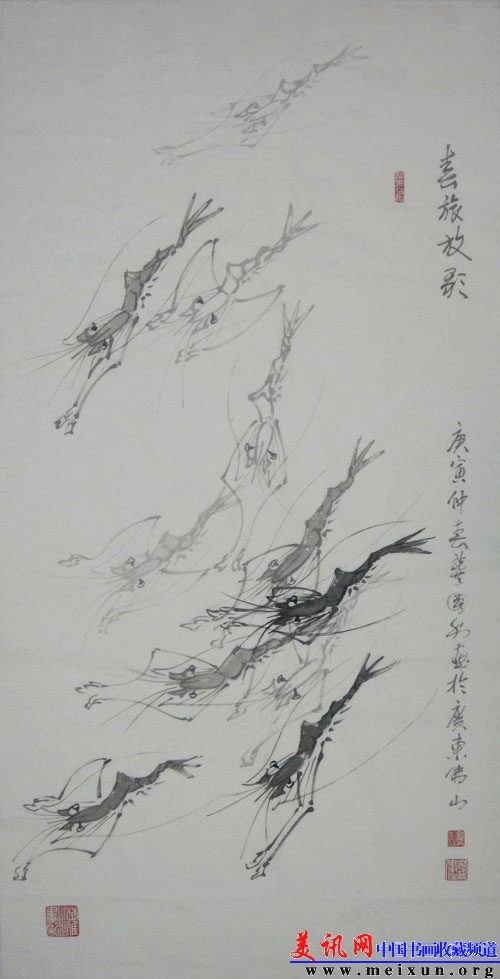 春旅放歌
庚寅仲春 国 画於廣東佛山
美讯网
中国书画收藏频道
www.meixun.org